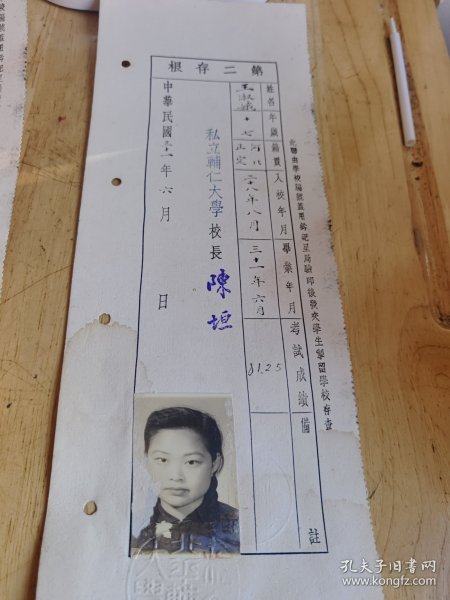 第二存根
此聯由學校編號蓋用鈐記呈局驗印後發交學生肄業學校存查
姓名 年歲 籍貫 入校年月 畢業年月 考試成績 備註
王淑 十七 河北正定 二十八年八月 三十一年六月 81.25
私立輔仁大學校長 陳垣
中華民國三十一年六月 日
孔夫子旧书网
www.kongfz.com